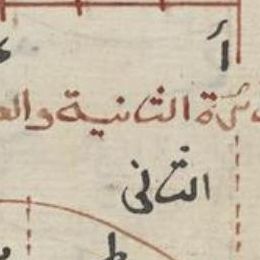 أ
الثانية وال
الثانى
ط